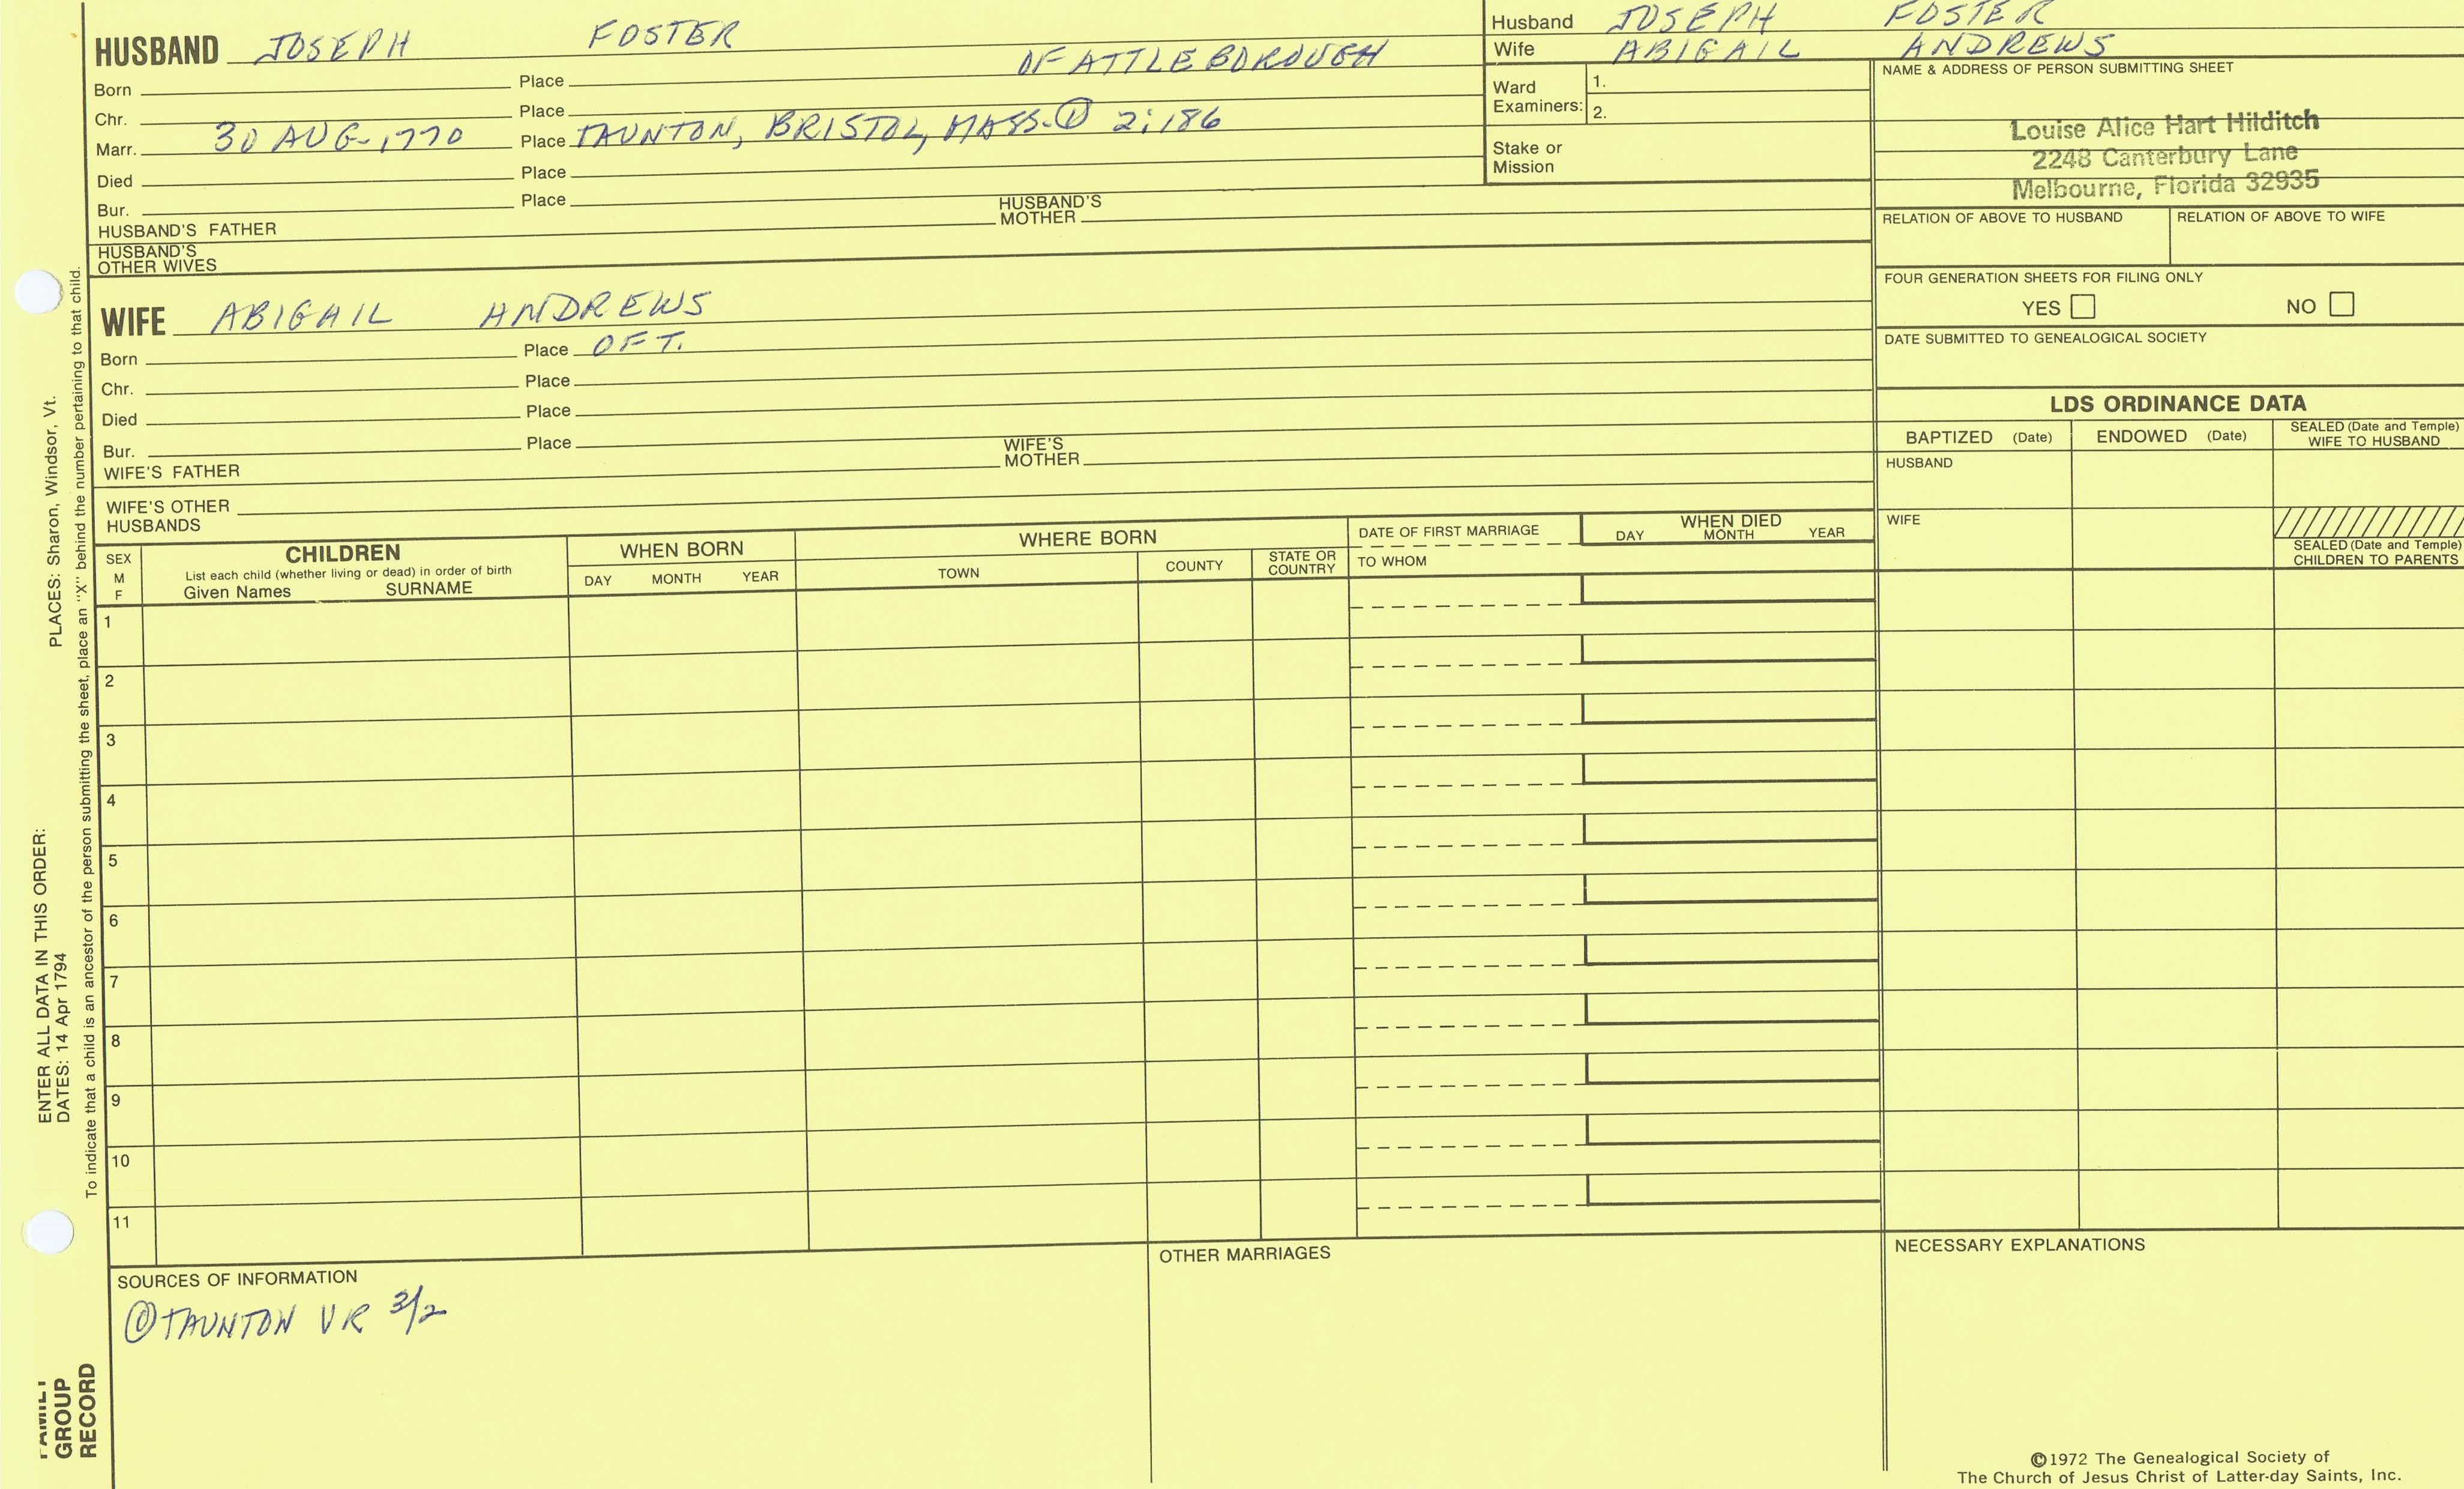 HUSBAND JOSEPH FOSTER
OF ATTLEBOROUGH
Born Place
Chr. Place
Marr. 30 AUG. 1770 Place TAUNTON, BRISTOL, MASS. ① 2:186
Died Place
Bur. Place
HUSBAND'S FATHER HUSBAND'S MOTHER
HUSBAND'S
OTHER WIVES
Husband JOSEPH FOSTER
Wife ABIGAIL ANDREWS
Ward
Examiners:
1.
2.
Stake or
Mission
NAME & ADDRESS OF PERSON SUBMITTING SHEET
Louise Alice Hart Hilditch
2248 Canterbury Lane
Melbourne, Florida 32935
RELATION OF ABOVE TO HUSBAND RELATION OF ABOVE TO WIFE
FOUR GENERATION SHEETS FOR FILING ONLY
YES NO
DATE SUBMITTED TO GENEALOGICAL SOCIETY
WIFE ABIGAIL ANDREWS
Born Place OF T.
Chr. Place
Died Place
Bur. Place
WIFE'S FATHER WIFE'S MOTHER
WIFE'S OTHER
HUSBANDS
LDS ORDINANCE DATA
BAPTIZED (Date) ENDOWED (Date) SEALED (Date and Temple)
WIFE TO HUSBAND
HUSBAND
WIFE
SEALED (Date and Temple)
CHILDREN TO PARENTS
SEX
M
F
CHILDREN
List each child (whether living or dead) in order of birth
Given Names SURNAME
WHEN BORN
DAY MONTH YEAR
WHERE BORN
TOWN COUNTY STATE OR COUNTRY
DATE OF FIRST MARRIAGE
TO WHOM
WHEN DIED
DAY MONTH YEAR
1
2
3
4
5
6
7
8
9
10
11
SOURCES OF INFORMATION
① TAUNTON VR 3/2
OTHER MARRIAGES
NECESSARY EXPLANATIONS
©1972 The Genealogical Society of
The Church of Jesus Christ of Latter-day Saints, Inc.
ENTER ALL DATA IN THIS ORDER:
DATES: 14 Apr 1794 PLACES: Sharon, Windsor, Vt.
To indicate that a child is an ancestor of the person submitting the sheet, place an "X" behind the number pertaining to that child.
FAMILY
GROUP
RECORD